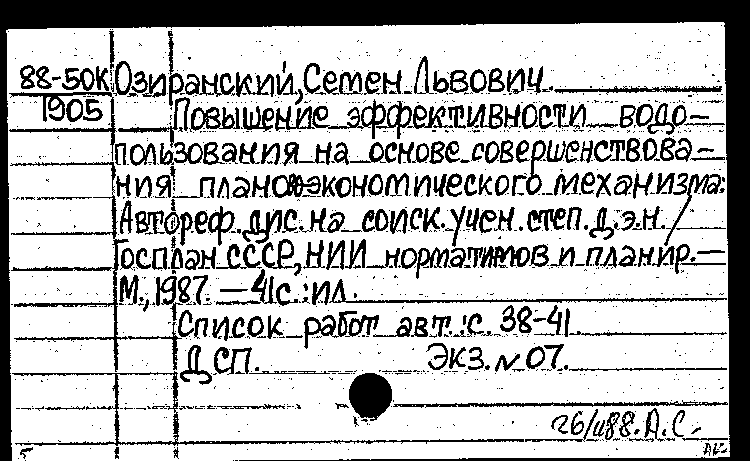 88-50К Озиранский, Семен Львович.
1905 Повышение эффективности водо-
пользования на основе совершенствова-
ния планово-экономического механизма:
Автореф. дис. на соиск. учен. степ. д.э.н. /
Госплан СССР, НИИ нормативов и планир. —
М., 1987. — 41 с. : ил.
Список работ авт. : с. 38-41.
ДСП. Экз. № 07.
А.С.